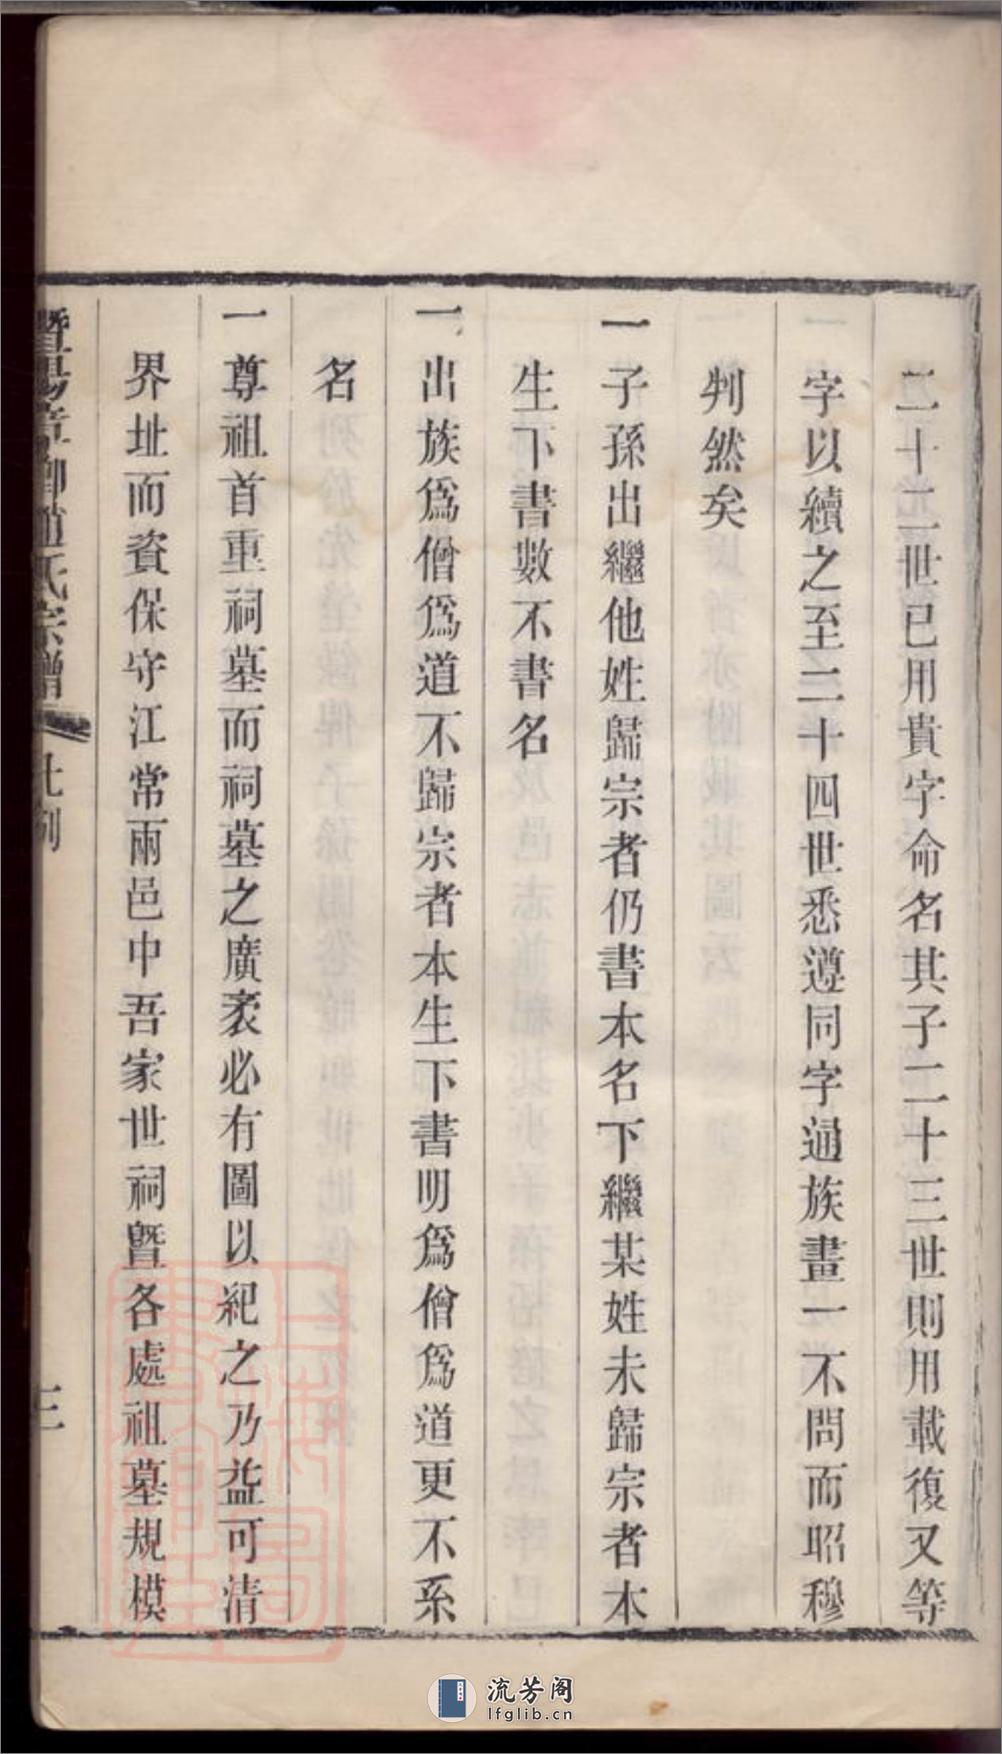 二十二世已用貴字命名其子二十三世則用載復又等
字以續之至二十四世悉遵同字通族畫一不問而昭穆
判然矣
一子孫出繼他姓歸宗者仍書本名下繼某姓未歸宗者本
生下書數不書名
一出族爲僧爲道不歸宗者本生下書明爲僧爲道更不系
名
一尊祖首重祠墓而祠墓之廣袤必有圖以紀之乃益可清
界址而資保守江常兩邑中吾家世祠曁各處祖墓規模
暨陽章卿趙氏宗譜
凡例
三
上海圖書館藏
流芳阁
lfglib.cn